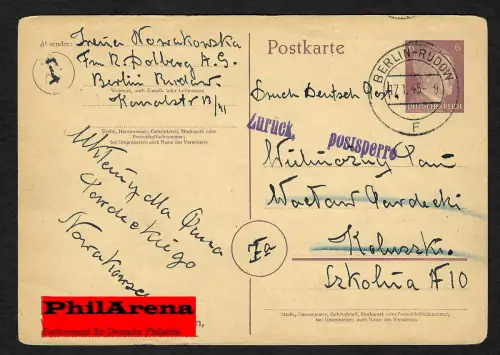 Absender: Irena Nowakowska
Fm R. Dolberg A.G.
Berlin Rudow
Wohnort, auch Zustell- oder Leitpostamt
Kanalstr
Straße, Hausnummer, Gebäudeteil, Stockwerk oder
Postschließfachnummer,
bei Untermietern auch Name des Vermieters
Postkarte
6
BERLIN-RUDOW
DEUTSCHES REICH
F
Durch Deutsch Post
Zurück, postsperre
Wielmożny Pan
Wacław Gardecki
Koluszki
Szkolna 10
Straße, Hausnummer, Gebäudeteil, Stockwerk oder Postschließfachnummer,
bei Untermietern auch Name des Vermieters
dla Pana
Gardeckiego
Nowakowska
PhilArena
Fachversand für Deutsche Philatelie